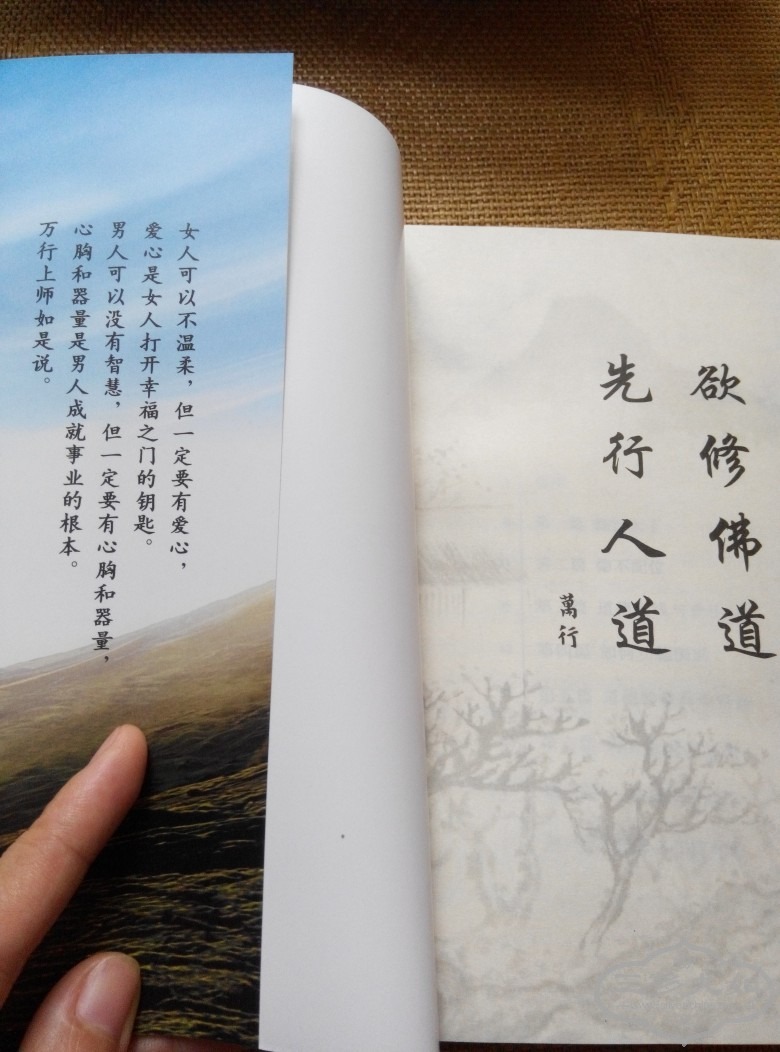 女人可以不温柔，但一定要有爱心，
爱心是女人打开幸福之门的钥匙。
男人可以没有智慧，但一定要有心胸和器量，
心胸和器量是男人成就事业的根本。
万行上师如是说。
欲修佛道
先行人道
萬行